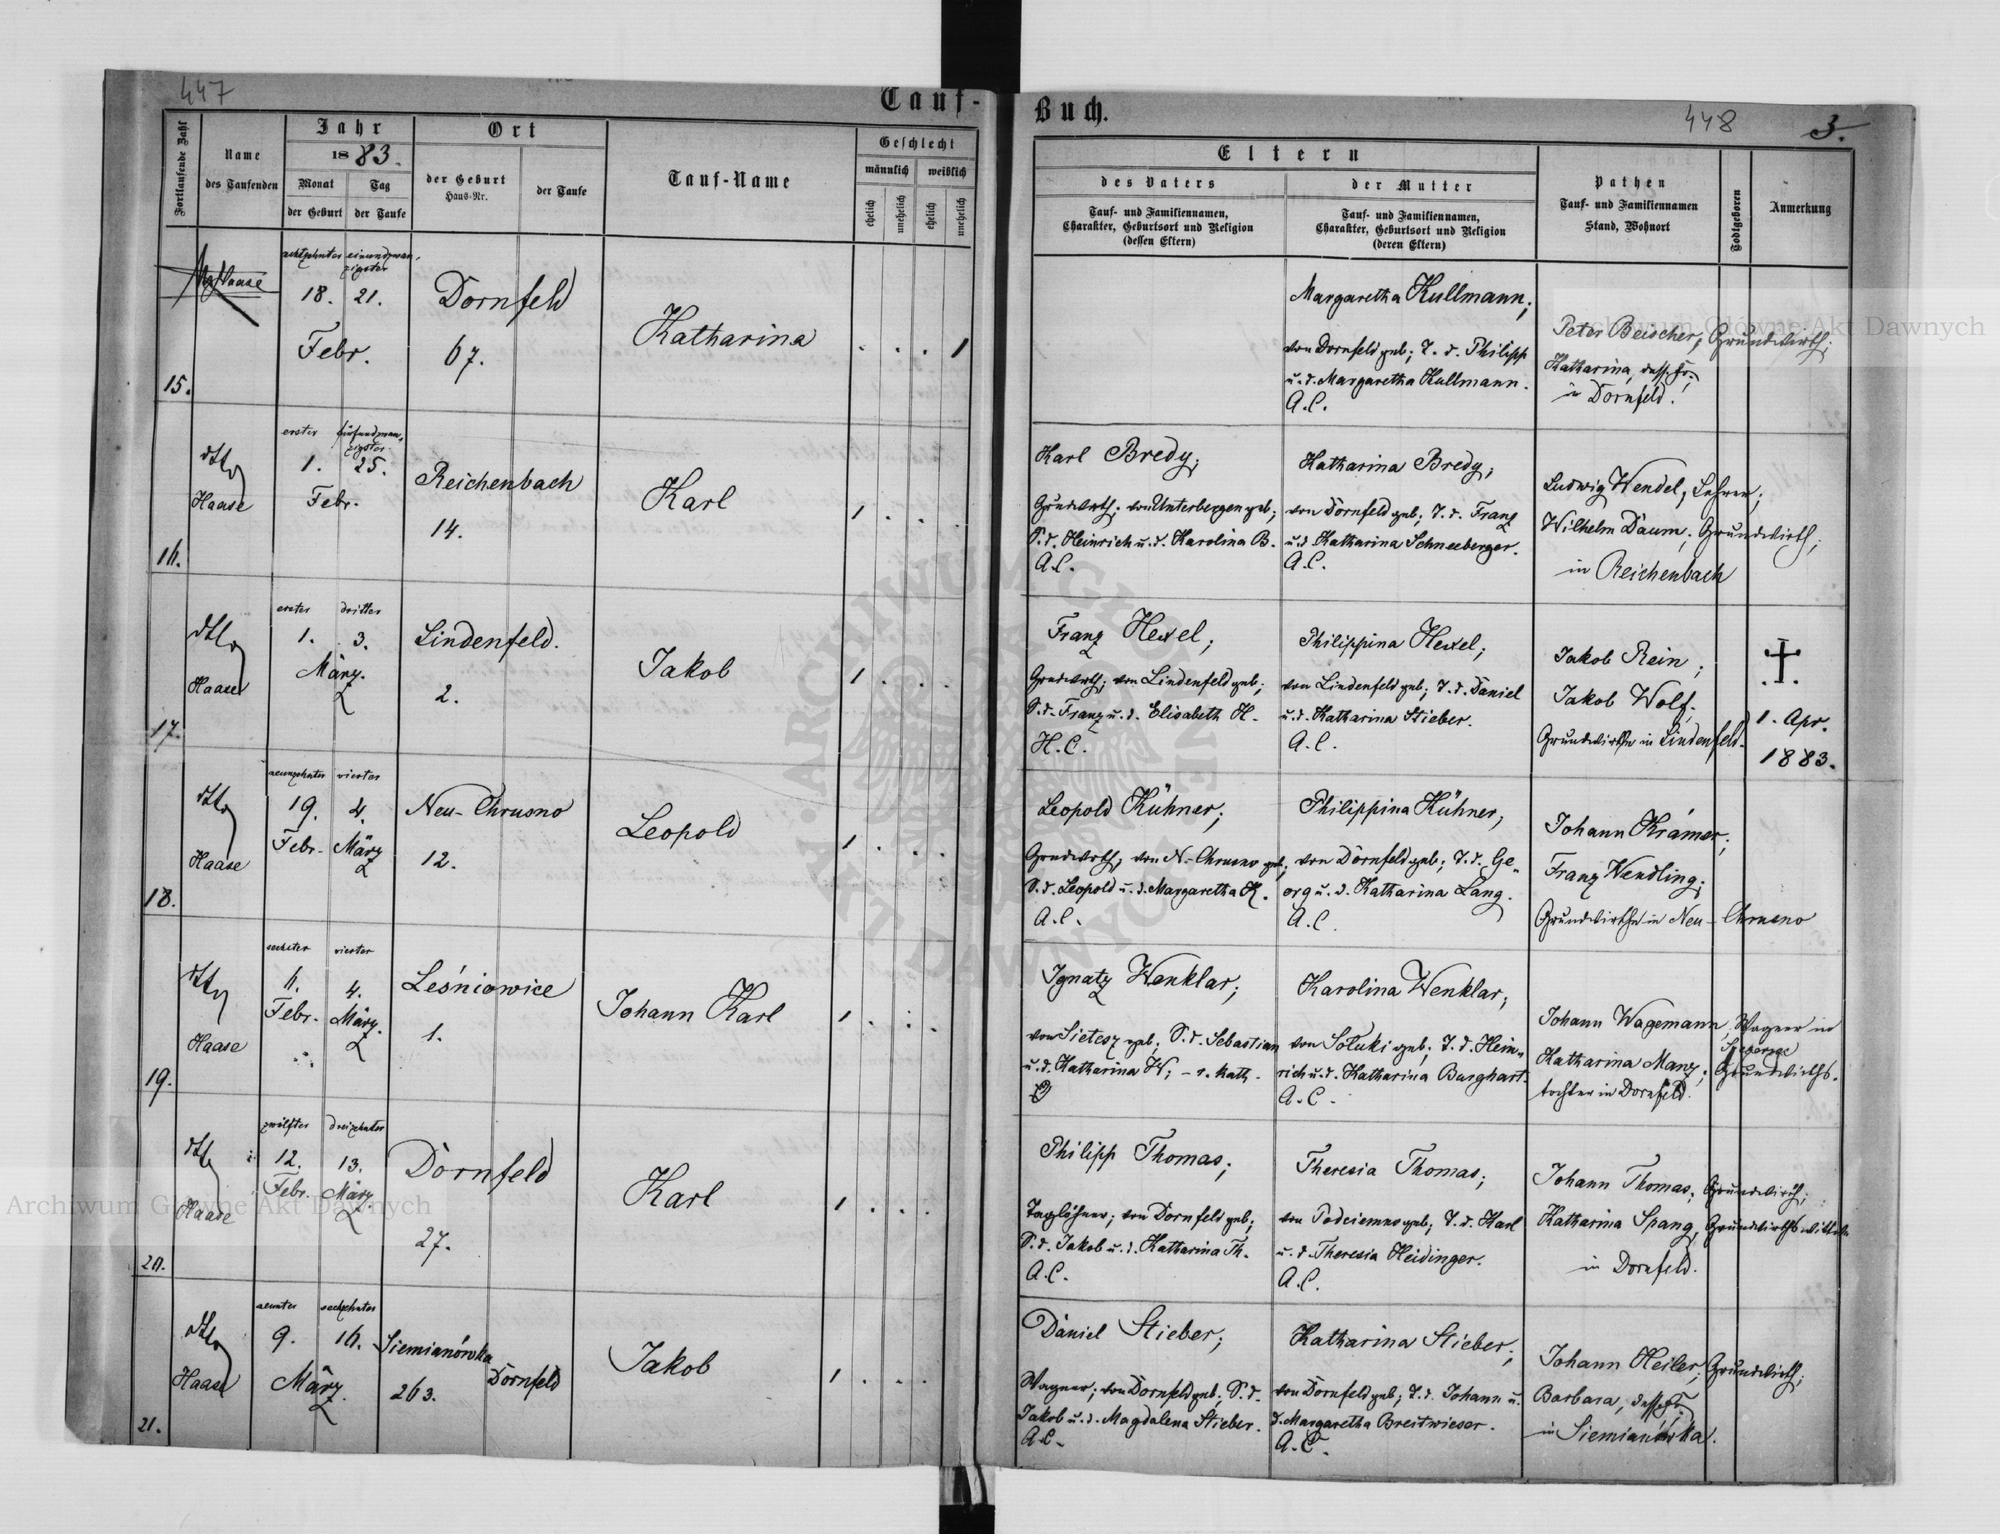 447
Tauf-
Buch.
448
3.
Fortlaufende Zahl
Name
des Taufenden
Jahr
1883.
Monat
Tag
der Geburt
der Taufe
Ort
der Geburt
Haus-Nr.
der Taufe
Tauf-Name
Geschlecht
männlich
weiblich
ehelich
unehelich
ehelich
unehelich
Eltern
des Vaters
Tauf- und Familiennamen,
Charakter, Geburtsort und Religion
(dessen Eltern)
der Mutter
Tauf- und Familiennamen,
Charakter, Geburtsort und Religion
(deren Eltern)
Pathen
Tauf- und Familiennamen
Stand, Wohnort
Todtgeboren
Anmerkung
15.
Haase
achtzehnter
einundzwan-
zigster
18. 21.
Febr.
Dornfeld
67.
Katharina
1
Margaretha Kullmann;
von Dornfeld geb; T. d. Philipp
u. d. Margaretha Kullmann.
A.C.
Peter Beischer, Grundwirth;
Katharina, dess. Fr.
in Dornfeld.
16.
dtto
Haase
erster
fünfundzwan-
zigster
1. 25.
Febr.
Reichenbach
14.
Karl
1
Karl Bredy;
Grundwrth; von Unterbergen geb;
S. d. Heinrich u. d. Karolina B.
A.C.
Katharina Bredy;
von Dornfeld geb; T. d. Franz
u. d. Katharina Schneeberger.
A.C.
Ludwig Wendel, Lehrer;
Wilhelm Daum, Grundwirth;
in Reichenbach
17.
dtto
Haase
erster
dritter
1. 3.
März.
Lindenfeld.
2.
Jakob
1
Franz Hexel;
Grndwrth; von Lindenfeld geb;
S. d. Franz u. d. Elisabeth H.
H.C.
Philippina Hexel;
von Lindenfeld geb; T. d. Daniel
u. d. Katharina Stieber.
A.C.
Jakob Rein;
Jakob Wolf;
Grundwirthe in Lindenfeld.
1. Apr.
1883.
18.
dtto
Haase
neunzehnter
vierter
19. 4.
Febr. März
Neu-Chrusno
12.
Leopold
1
Leopold Kühner;
Grndwrth; von N-Chrusno geb;
S. d. Leopold u. d. Margaretha K.
A.C.
Philippina Kühner;
von Dornfeld geb; T. d. Ge-
org u. d. Katharina Lang.
A.C.
Johann Krämer;
Franz Wendling;
Grundwirthe in Neu-Chrusno
19.
dtto
Haase
sechster
vierter
6. 4.
Febr. März.
Leśniowice
1.
Johann Karl
1
Ignatz Wenklar;
von Sietesz geb; S. d. Sebastian
u. d. Katharina W; - r. kath.
Karolina Wenklar;
von Sołuki geb; T. d. Hein-
rich u. d. Katharina Burghart.
A.C.
Johann Wagemann, Wagner in
Katharina Manz, Grundwirths-
tochter in Dornfeld.
20.
dtto
Haase
zwölfter
dreizehnter
12. 13.
Febr. März
Dornfeld
27.
Karl
1
Philipp Thomas;
Taglöhner; von Dornfeld geb;
S. d. Jakob u. d. Katharina Th.
A.C.
Theresia Thomas;
von Podciemno geb; T. d. Karl
u. d. Theresia Heidinger.
A.C.
Johann Thomas, Grundwirth;
Katharina Spang, Grundwirths
in Dornfeld.
21.
dtto
Haase
neunter
sechzehnter
9. 16.
März.
Siemianówka
263.
Dornfeld
Jakob
1
Daniel Stieber;
Wagner; von Dornfeld geb; S. d.
Jakob u. d. Magdalena Stieber.
A.C.
Katharina Stieber;
von Dornfeld geb; T. d. Johann u.
d. Margaretha Breitwieser.
A.C.
Johann Heiler, Grundwirth;
Barbara, dess. Fr.
in Siemianówka.
Archiwum Główne Akt Dawnych
Archiwum Główne Akt Dawnych
ARCHIWUM GŁÓWNE AKT DAWNYCH